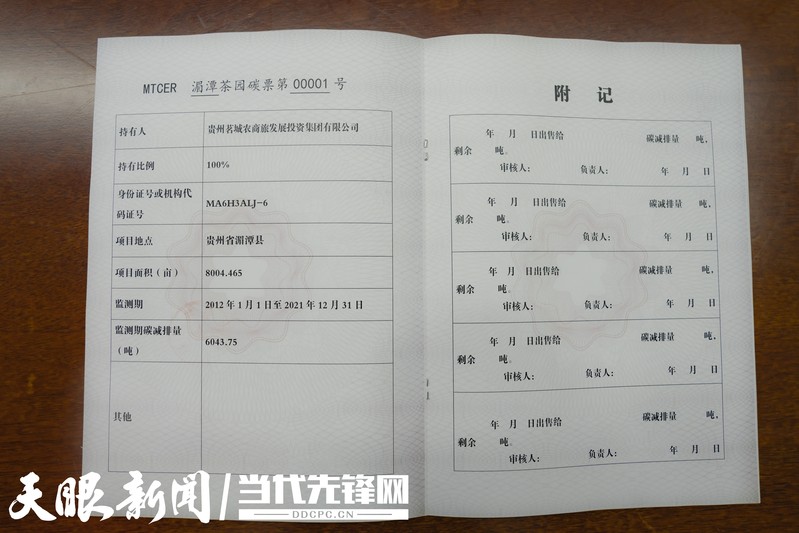 MTCER 湄潭茶园碳票第 00001 号
持有人 贵州茗城农商旅发展投资集团有限公司
持有比例 100%
身份证号或机构代
码证号 MA6H3ALJ-6
项目地点 贵州省湄潭县
项目面积（亩） 8004.465
监测期 2012 年 1 月 1 日至 2021 年 12 月 31 日
监测期碳减排量
（吨） 6043.75
其他
附 记
年 月 日出售给 碳减排量 吨，
剩余 吨。
审核人： 负责人： 年 月 日
年 月 日出售给 碳减排量 吨，
剩余 吨。
审核人： 负责人： 年 月 日
年 月 日出售给 碳减排量 吨，
剩余 吨。
审核人： 负责人： 年 月 日
年 月 日出售给 碳减排量 吨，
剩余 吨。
审核人： 负责人： 年 月 日
年 月 日出售给 碳减排量 吨，
剩余 吨。
审核人： 负责人： 年 月 日
天眼新闻/当代先锋网
DDCPC.CN